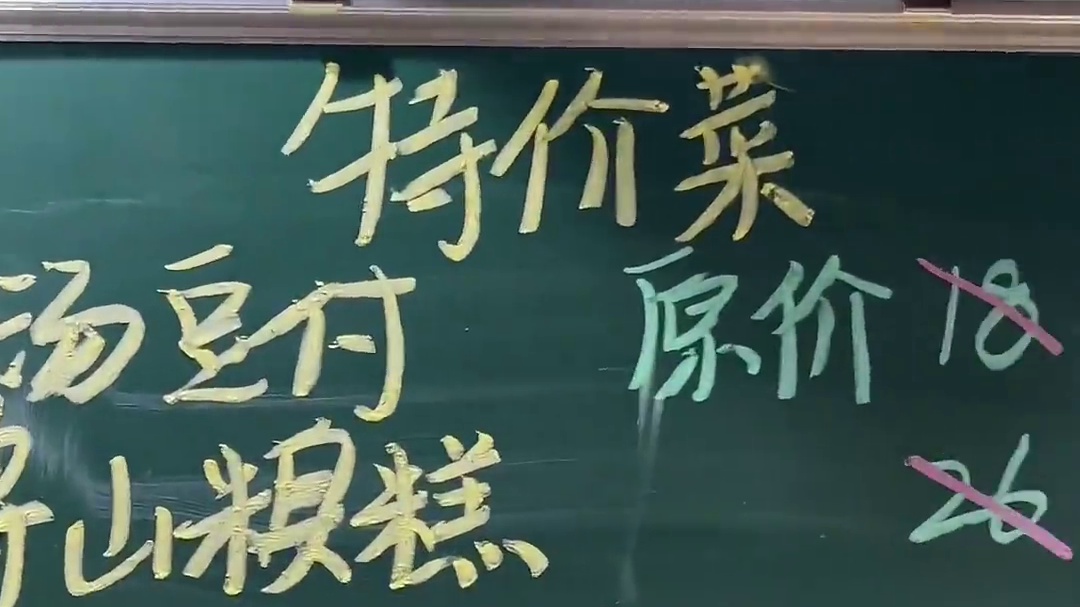 特价菜
汤豆付 原价 18
山粮糕 26